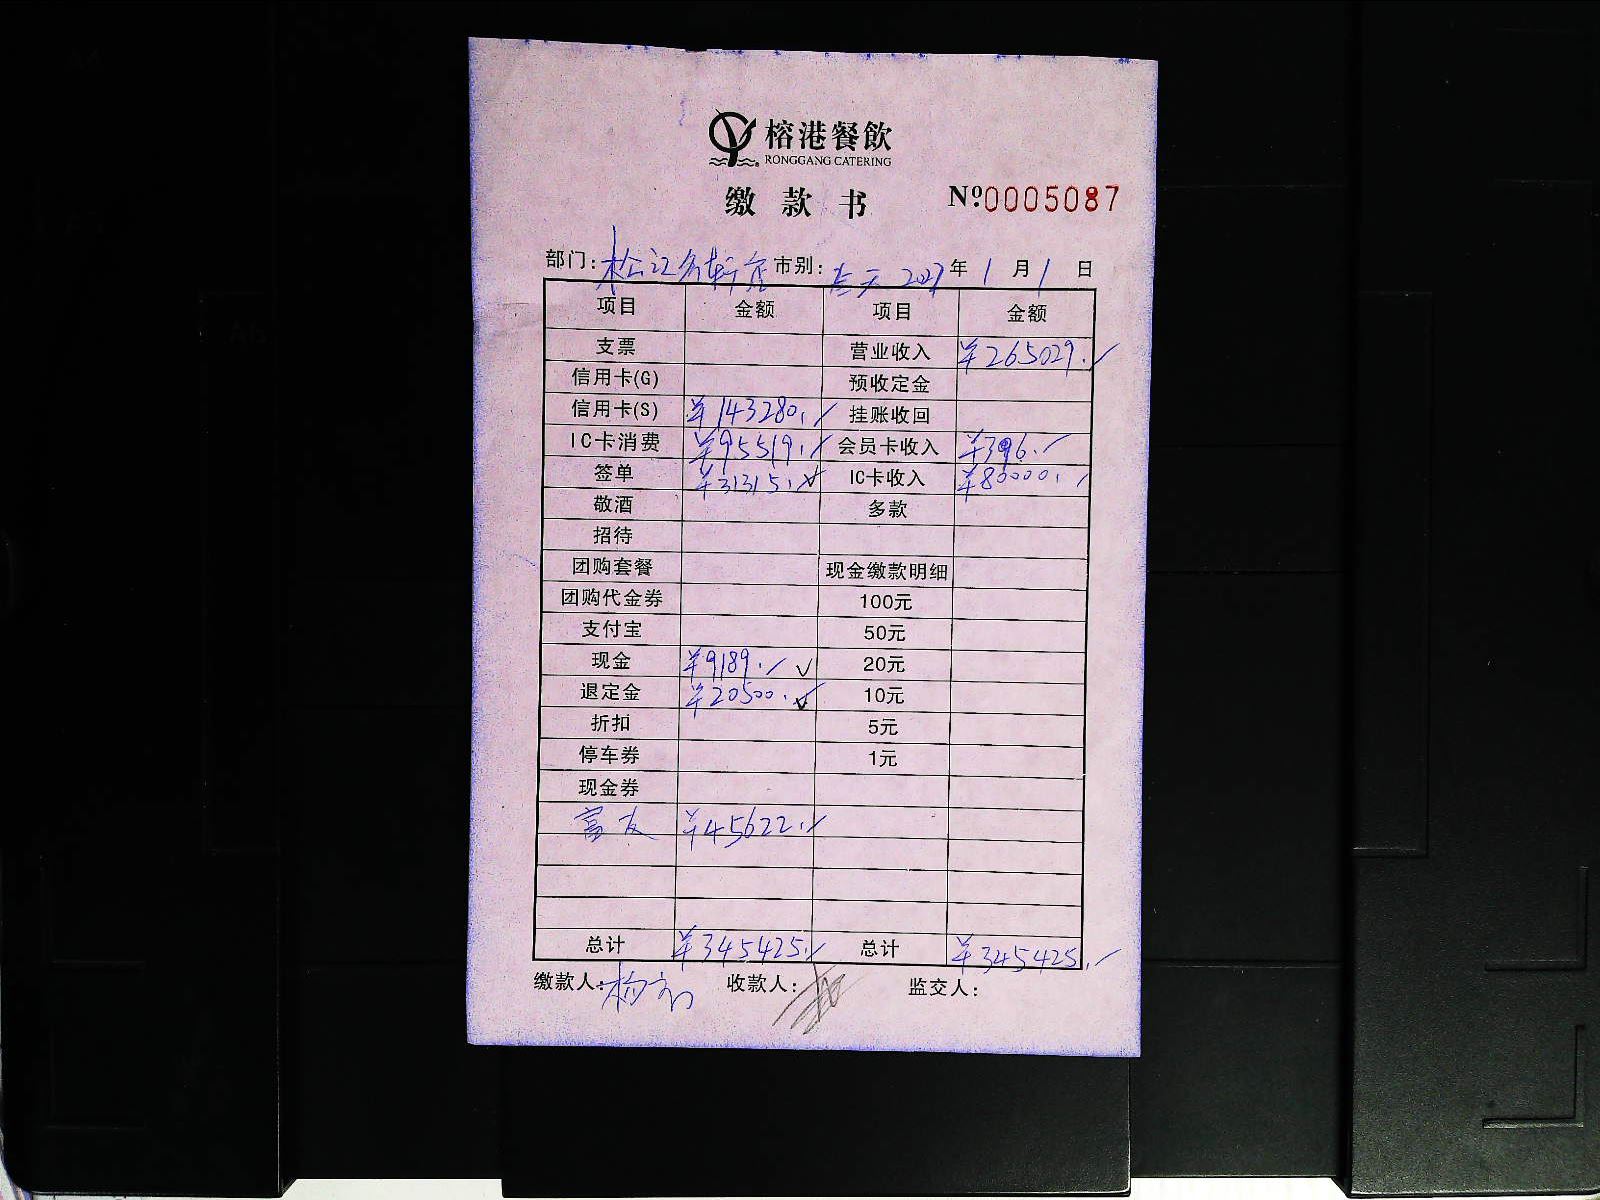 榕港餐飲
RONGGANG CATERING
缴款书 №0005087
部门: 松江名轩店 市别: 全天 2021年 1月 1日
项目 金额 项目 金额
支票 营业收入 ¥265029.
信用卡(G) 预收定金
信用卡(S) ¥143280. 挂账收回
IC卡消费 ¥95519. 会员卡收入 ¥396.
签单 ¥31315. IC卡收入 ¥80000.
敬酒 多款
招待
团购套餐 现金缴款明细
团购代金券 100元
支付宝 50元
现金 ¥9189. 20元
退定金 ¥20500. 10元
折扣 5元
停车券 1元
现金券
富友 ¥45622.
总计 ¥345425. 总计 ¥345425.
缴款人: 收款人: 监交人: